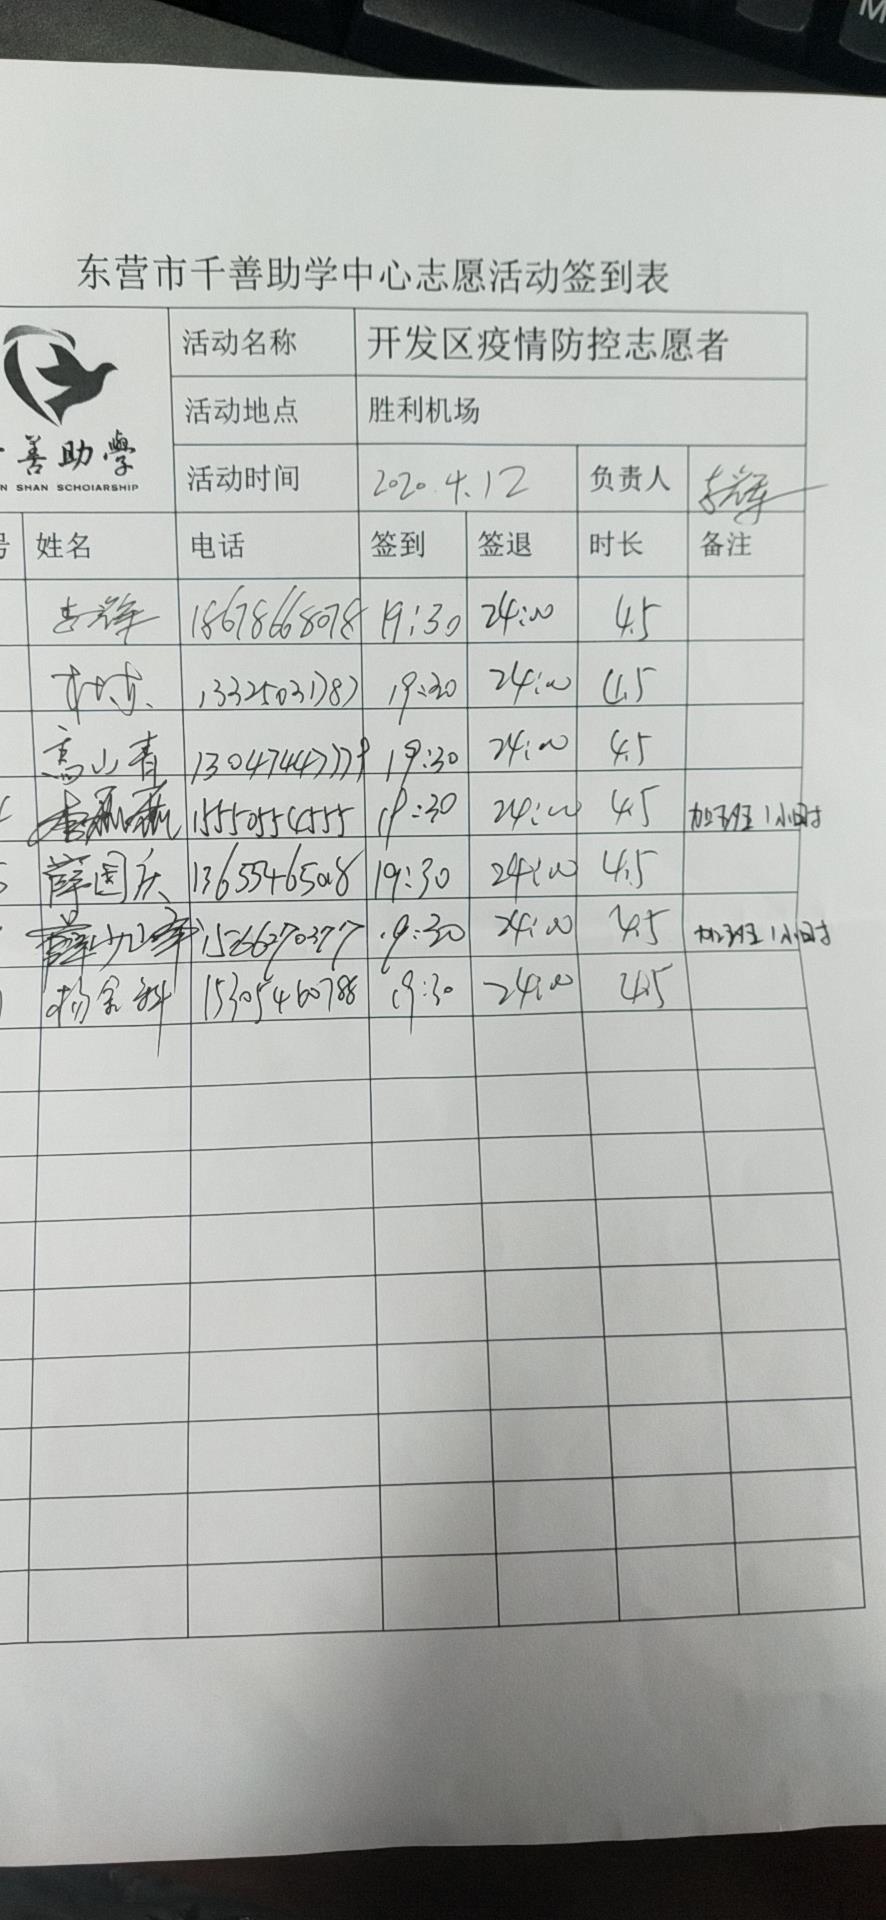 东营市千善助学中心志愿活动签到表
善助學
N SHAN SCHOIARSHIP
活动名称 开发区疫情防控志愿者
活动地点 胜利机场
活动时间 2020.4.12 负责人 李辉
号 姓名 电话 签到 签退 时长 备注
李辉 18678668078 19:30 24:00 4.5
19:30 24:00 4.5
高山青 19:30 24:00 4.5
15550554555 19:30 24:00 4.5 加班 1小时
5 薛国庆 13655465018 19:30 24:00 4.5
15266270377 19:30 24:00 4.5 加班 1小时
杨金科 15305460788 19:30 24:00 4.5